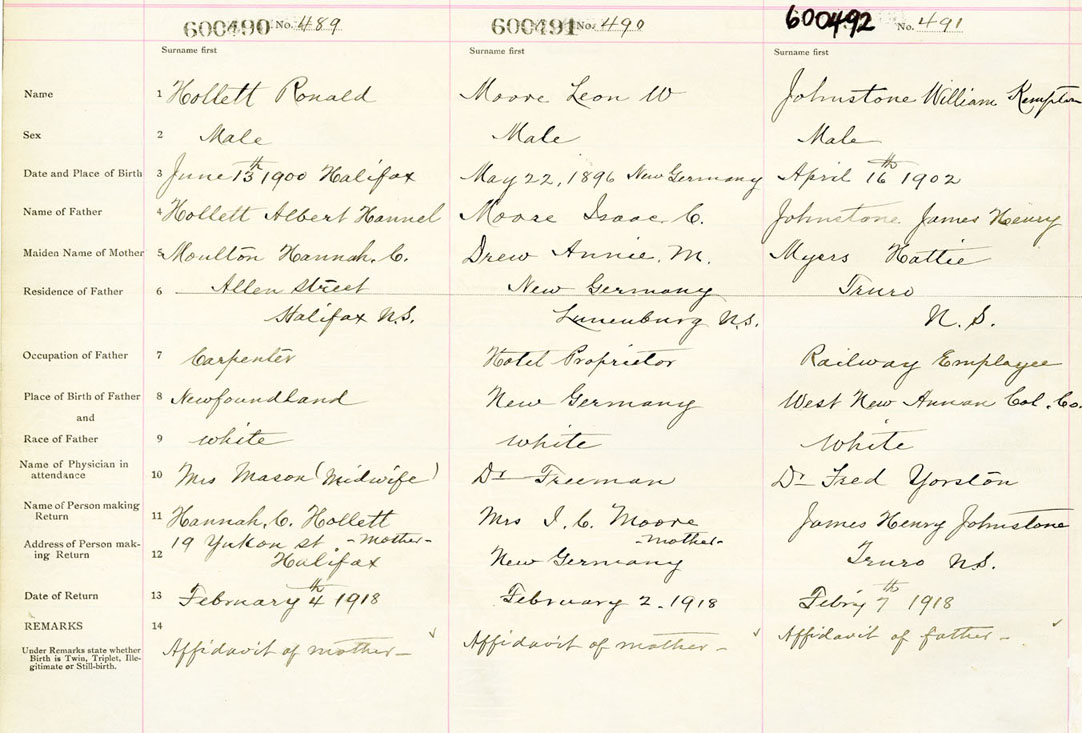 600490 No. 489 600491 No. 490 600492 No. 491
Surname first Surname first Surname first
Name 1 Hollett Ronald Moore Leon W Johnstone William Kempton
Sex 2 Male Male Male
Date and Place of Birth 3 June 13th 1900 Halifax May 22, 1896 New Germany April 16th 1902
Name of Father 4 Hollett Albert Hannel Moore Isaac C. Johnstone James Henry
Maiden Name of Mother 5 Moulton Hannah. C. Drew Annie. M. Myers Hattie
Residence of Father 6 Allen Street New Germany Truro
Halifax N.S. Lunenburg N.S. N.S.
Occupation of Father 7 Carpenter Hotel Proprietor Railway Employee
Place of Birth of Father 8 Newfoundland New Germany West New Annan Col. Co.
and
Race of Father 9 white white White
Name of Physician in
attendance 10 Mrs Mason (Midwife) Dr Freeman Dr Fred Yorston
Name of Person making
Return 11 Hannah. C. Hollett Mrs I. C. Moore James Henry Johnstone
Address of Person mak- 19 Yukon st - Mother - - Mother -
ing Return 12 Halifax New Germany Truro N.S.
Date of Return 13 February 4th 1918 February 2 - 1918 Febry 7th 1918
REMARKS 14
Under Remarks state whether Affidavit of mother - Affidavit of mother - Affidavit of father -
Birth is Twin, Triplet, Ille-
gitimate or Still-birth.